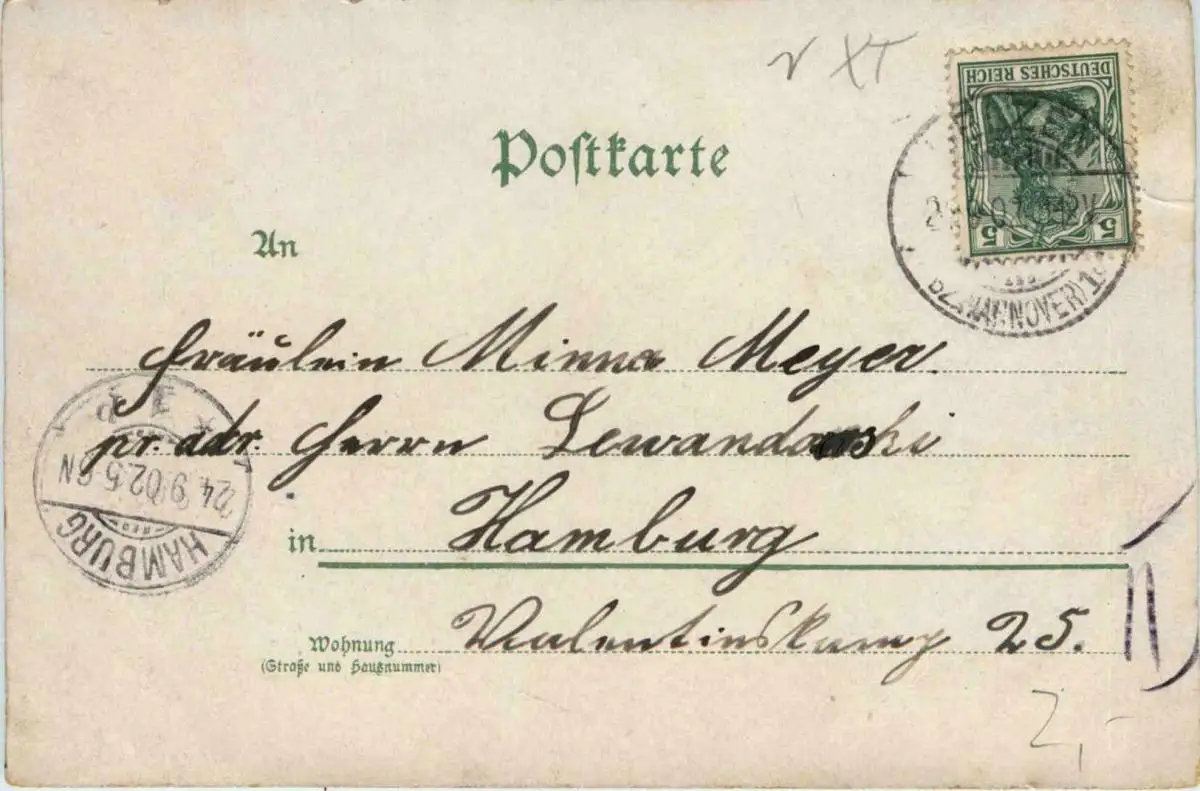 XT
DEUTSCHES REICH
5 5
Postkarte
An
(BZ. HANNOVER)
Fräulein Minna Meyer.
pr. adr. Herrn Lewandowski
24.9.02.5-6N
HAMBURG
in Hamburg
Wohnung Valentinskamp 25.
(Straße und Hausnummer)
2,-